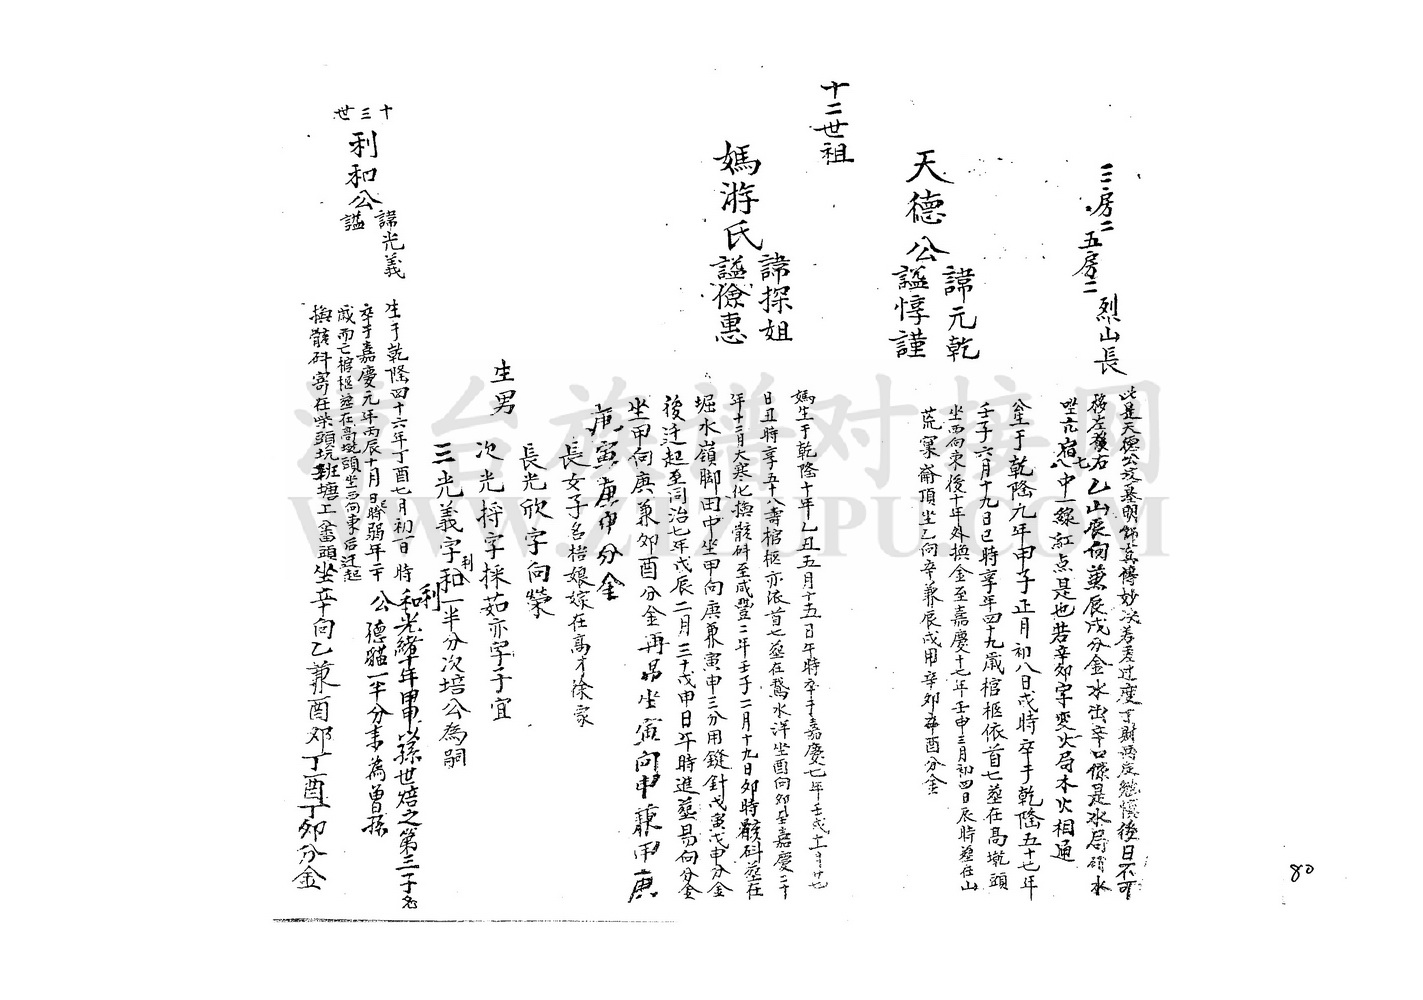 三房二
五房二
烈山長
此是天德公攻墓明師真傳妙決若差过度丁財两定勉慎後日不可
移左發右乙山辰向兼辰戌分金水出辛口係是水局
坐亢宿七八中一線紅点是也若辛卯字变火局木火相通
十二世祖
天德公
諱元乾
謚惇謹
公生于乾隆元年甲子正月初八日戌時卒于乾隆五十七年
壬子六月十九日巳時享年四十九歲棺柩依首七塟在高墩頭
坐西向東後十年外換金至嘉慶十七年壬申三月初四日辰時塟在山
荒窠崙頂坐乙向辛兼辰戌用辛卯辛酉分金
媽游氏
諱探姐
謚儉惠
媽生于乾隆十年乙丑五月十五日午時卒于嘉慶七年壬戌十二月廿七
日丑時享五十八壽棺柩亦依首七塟在鵞水洋坐酉向卯至嘉慶二十
年十二月大寒化換骸科至咸豐二年壬子二月十九日卯時骸科塟在
堀水嶺脚田中坐甲向庚兼寅申三分用縫針戊寅戊申分金
後迁起至同治七年戊辰二月三十戊申日午時進塟易向分金
坐甲向庚兼卯酉分金再易坐寅向申兼甲庚
庚寅庚申分金
生男
長女子名招娘嫁在高才徐家
長光欣字向榮
次光捋字採茹亦字子宜
三光義字利和一半分次培公為嗣
十三世
利和公
諱光義
謚
生于乾隆四十六年丁酉七月初一日 時
卒于嘉慶元年丙辰十月日 弱年二十
歲而亡棺柩塟在高墩頭坐西向東后迁起
換骸科寄在柴頭坑 塘工 頭坐辛向乙兼酉卯丁酉丁卯分金
利和光緒十年甲申以孫世焙之第三子名
公德貓一半分来為曾孫
80
潭台族谱对接网
WWW.ZIZUPU.COM